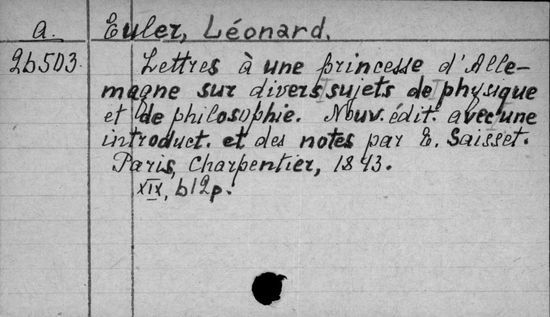 a. Euler, Léonard.
26503. Lettres à une princesse d'Alle-
magne sur divers sujets de physique
et de philosophie. Nouv. édit. avec une
introduct. et des notes par E. Saisset.
Paris, Charpentier, 1843.
XIX, 612 p.